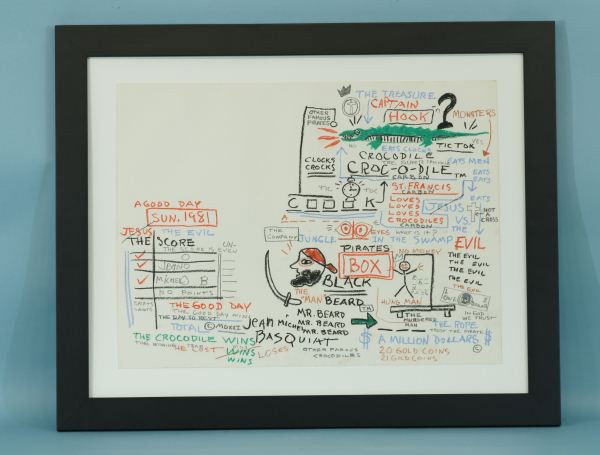 A GOOD DAY
SUN. 1981
THE EVIL
JESUS
THE SCORE
UN-
EVEN
JEAN
MICHEL
NO POINTS
THE GOOD DAY
TOTAL
THE CROCODILE WINS
HE LOST
WINS
WINS
LOSES
THE TREASURE
CAPTAIN
HOOK
?
MONSTERS
OTHER
FAMOUS
PIRATES
NO
YES
TIC TOK
EATS CLOCKS
CLOCKS
CROCKS
CROCODILE
CROC-O-DILE™
CARBON
EATS MEN
EATS
EATS
TIC
TOC
C O K
ST. FRANCIS
CARBON
LOVES
LOVES
LOVES
LOVES
CROCODILES
CARBON
JESUS
VS
THE
EVIL
EATS
NOT
A
CROSS
A
EYES
WHAT IS IT?
THE
COMPANY
JUNGLE
IN THE SWAMP
PIRATES
BOX
NO MONEY
THE EVIL
THE EVIL
THE EVIL
THE EVIL
THE EVIL
BLACK
BEARD
THE
"MAN"
MR. BEARD
MR. BEARD
MR. BEARD
JEAN MICHEL
BASQUIAT
OTHER FAMOUS
CROCODILES
TM
HUNG MAN
THE
MURDERER
MAN
ONE
IN GOD
WE TRUST
THE ROPE
$
A MILLION DOLLARS
$
20 GOLD COINS
21 GOLD COINS
©